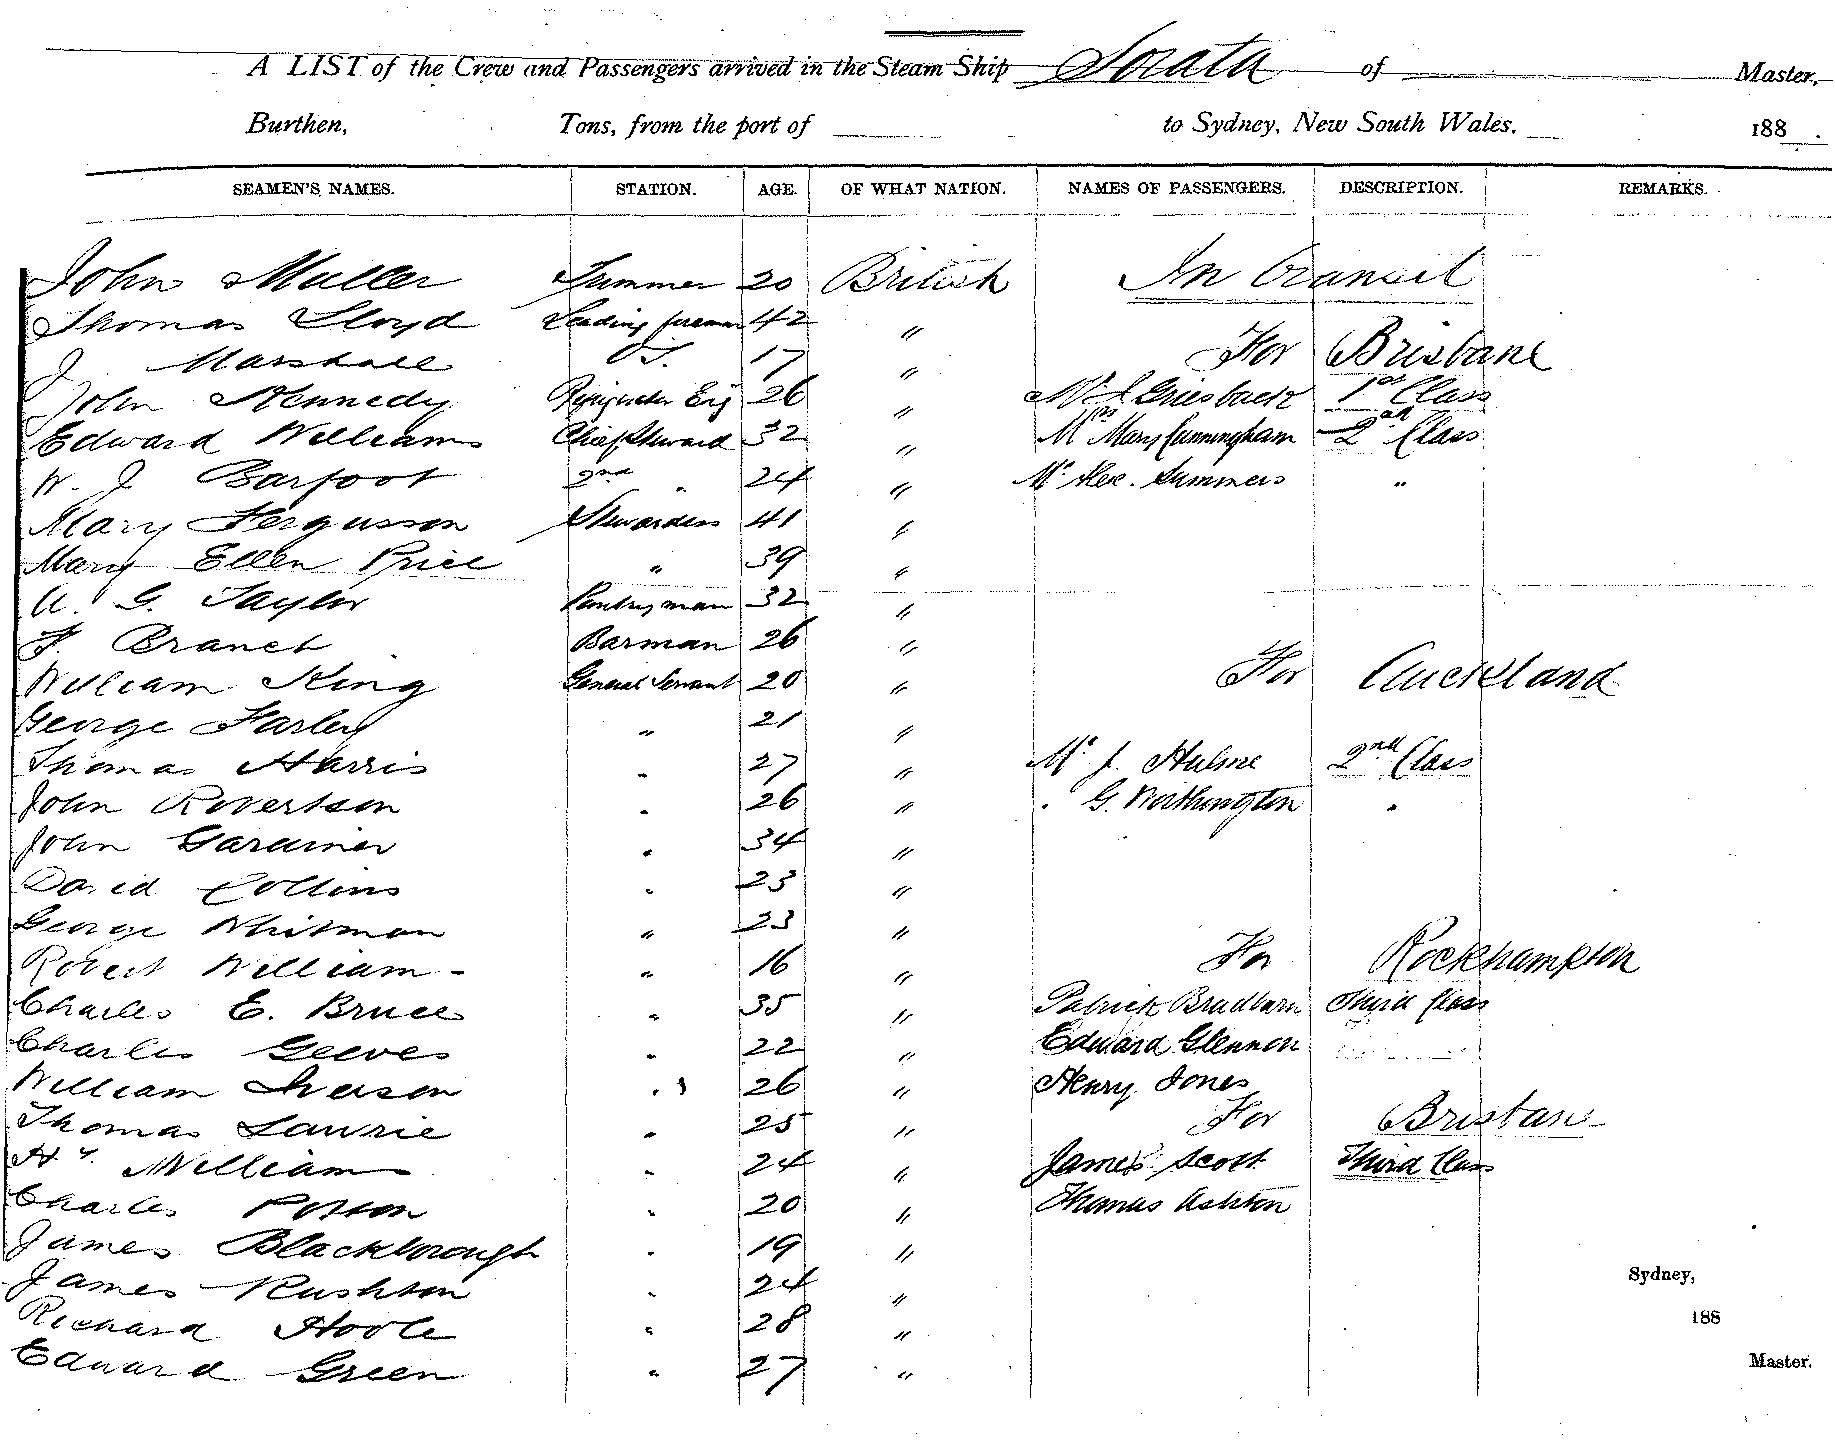 A LIST of the Crew and Passengers arrived in the Steam Ship Sorata of Master,
Burthen, Tons, from the port of to Sydney, New South Wales. 188 .
SEAMEN'S NAMES. STATION. AGE. OF WHAT NATION. NAMES OF PASSENGERS. DESCRIPTION. REMARKS.
John Muller Trimmer 20 British In transit
Thomas Lloyd Leading fireman 42 "
For Brisbane
J. Marshall 17 "
John Kennedy Eng 26 " Griesback 1st Class
Edward Williams Chief Steward 32 " Mrs Mary Cunningham 2nd Class
W. J. Barfoot 2nd " 24 " Mr Alex. Summers "
Mary Fergusson Stewardess 41 "
Mary Ellen Price " 39 "
A. G. Taylor Pantryman 32 "
F. Branch Barman 26 "
William King General Servant 20 " For Auckland
George Farley " 21 "
Thomas Harris " 27 " Mr J. Hulme 2nd Class
John Robertson " 26 " " G. Worthington "
John Gardiner " 34 "
David Collins " 23 "
George Whitman " 23 "
For Rockhampton
Robert William " 16 "
Charles E. Bruce " 35 " Patrick Bradburn Third Class
Charles Geeves " 22 " Edward Glennon
William Iverson " 26 " Henry Jones
For Brisbane
Thomas Lawrie " 25 "
Hy. William " 24 " James Scott Third Class
Charles " 20 " Thomas Ashton
James Blackborough " 19 "
James Rushton " 24 " Sydney,
Richard Hoole " 28 " 188
Edward Green " 27 " Master.